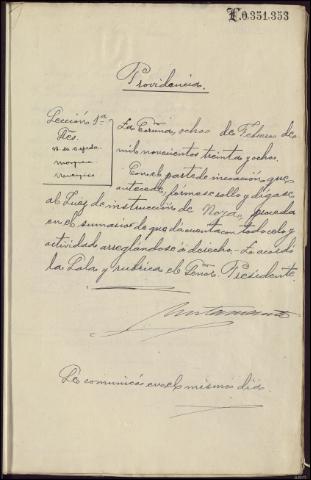 L.0.351.353
Providencia.
Sección 1ª
Sres.
La Coruña, ocho de Febrero de
mil novecientos treinta y ocho.
Con el parte de incoación que
antecede, fórmese rollo y dígase
al Juez de instrucción de Noya, proceda
en el sumario de que da cuenta con todo celo y
actividad arreglándose a derecho. Lo acordó
la Sala y rubrica el Señor Presidente.
Se comunicó en el mismo día.